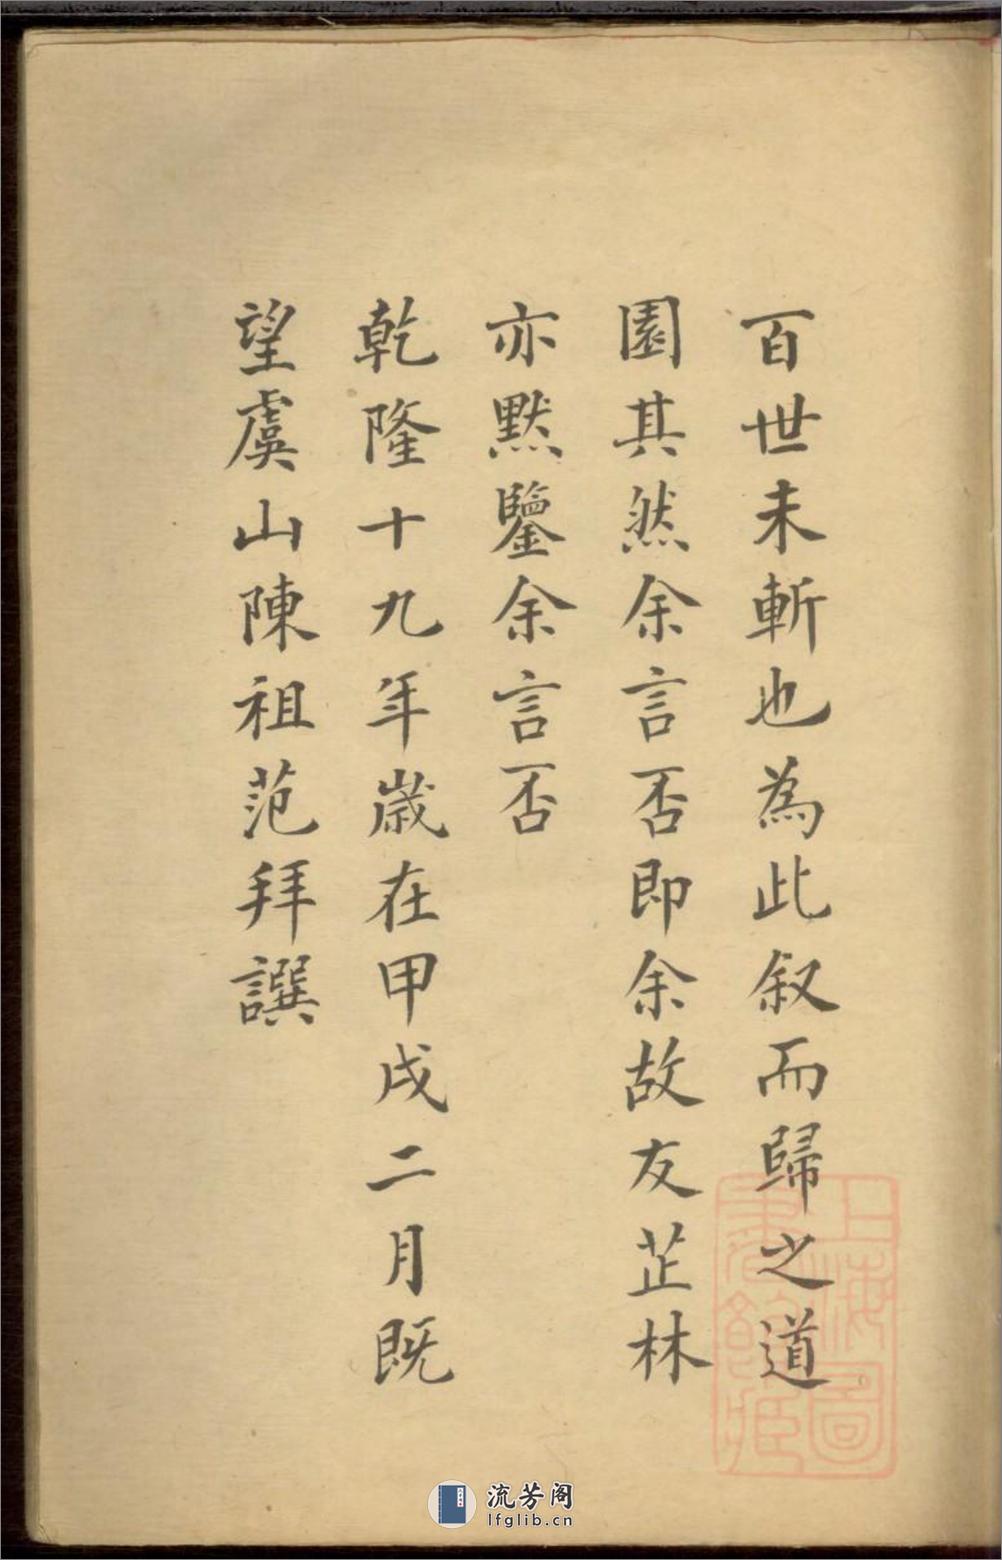 百世未斬也為此叙而歸之道
園其然余言否即余故友芷林
亦默鑒余言否
乾隆十九年歲在甲戌二月既
望虞山陳祖范拜譔
上海圖
書館藏
流芳阁
lfglib.cn